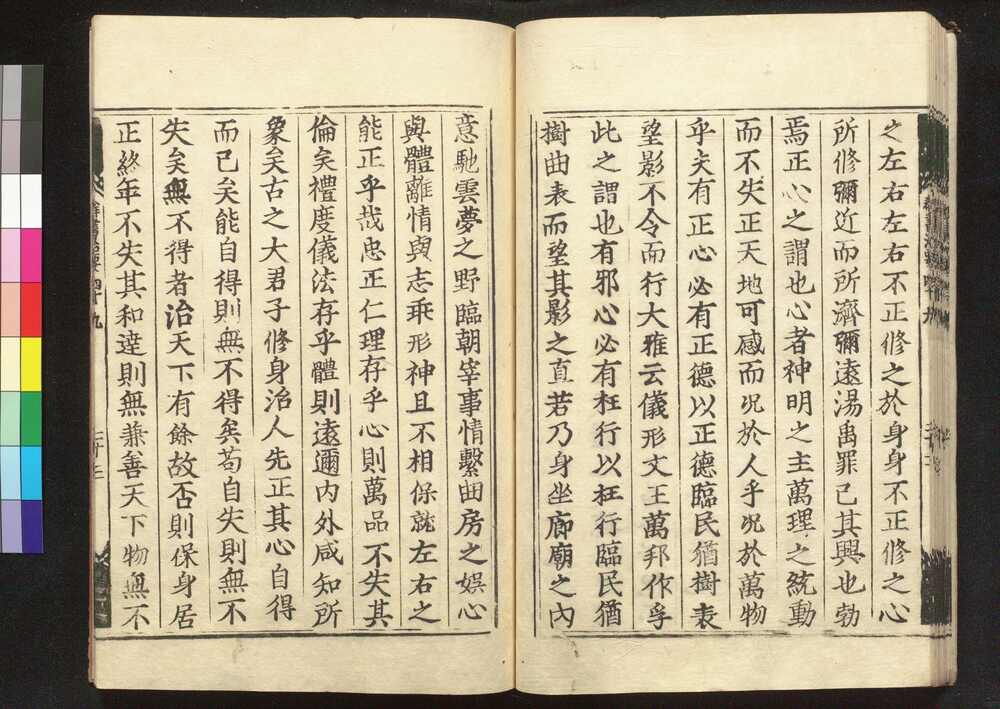 之左右左右不正修之於身身不正修之心
所修彌近而所濟彌遠湯禹罪己其興也勃
焉正心之謂也心者神明之主萬理之統動
而不失正天地可感而況於人乎況於萬物
乎夫有正心必有正德以正德臨民猶樹表
望影不令而行大雅云儀形文王萬邦作孚
此之謂也有邪心必有枉行以枉行臨民猶
樹曲表而望其影之直若乃身坐廊廟之內
意馳雲夢之野臨朝宰事情繫曲房之娛心
與體離情與志乖形神且不相保孰左右之
能正乎哉忠正仁理存乎心則萬品不失其
倫矣禮度儀法存乎體則遠邇內外咸知所
象矣古之大君子修身治人先正其心自得
而已矣能自得則無不得矣苟自失則無不
失矣無不得者治天下有餘故否則保身居
正終年不失其和達則無兼善天下物無不
群書治要 四十九